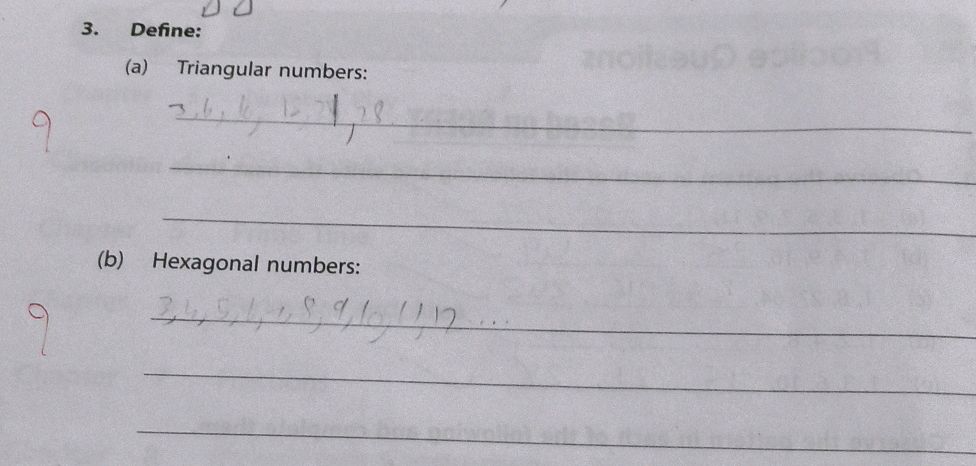 3. Define:
(a) Triangular numbers:
9 3, 6, 28.
(b) Hexagonal numbers:
9 3, 4, 5, 6, 7, 8, 9, 10, 11, 12 ...